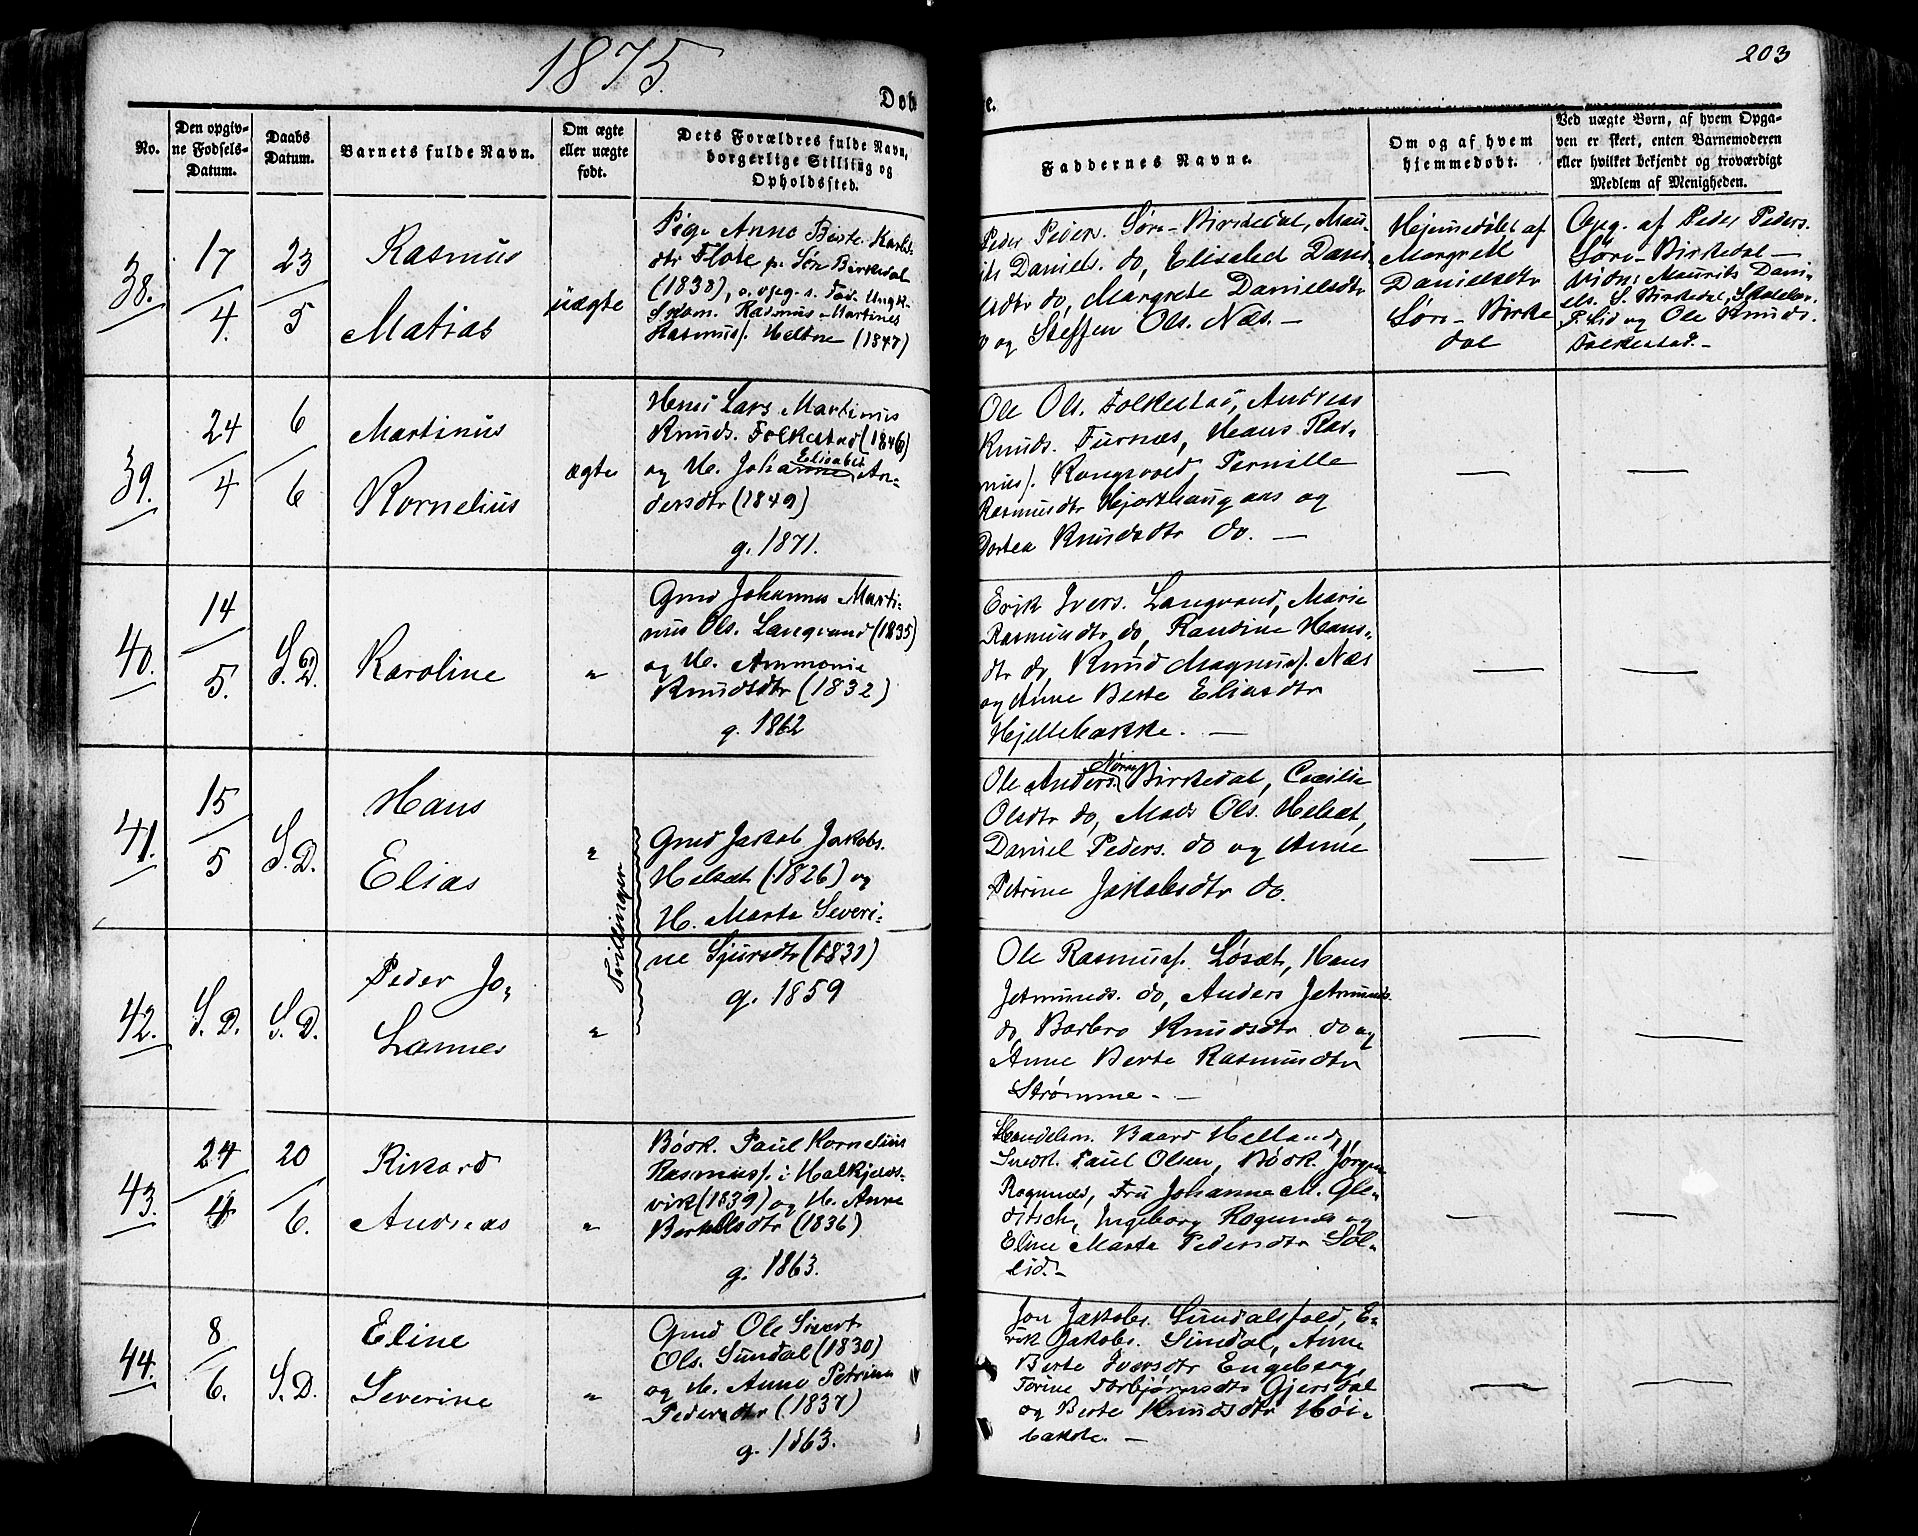 1875.
203
Døb
e.
No.
Den opgiv-
ne Fødsels-
Datum.
Daabs
Datum.
Barnets fulde Navn.
Om ægte
eller uægte
født.
Dets Forældres fulde Navn,
borgerlige Stilling og
Opholdssted.
Faddernes Navne.
Om og af hvem
hjemmedøbt.
Ved uægte Børn, af hvem Opga-
ven er skeet, enten Barnemoderen
eller hvilket bekjendt og troværdigt
Medlem af Menigheden.
38.
17/4.
23/5
Rasmus
Matias
uægte
Pige Anne Berte Karls-
dtr Flote p. Søn Birkedal
(1838), o. opg. s. Fad. Ungk.
Rasmus Martines
Rasmuss. Heltne (1847)
Peder Peders. Søre-Birkedal, Mau-
its Daniels. do, Elisabed Dani-
elsdtr do, Margrete Danielsdtr
o og Steffen Ols. Næs. —
Hjemmedøbt af
Margrett
Danielsdtr
Søre-Birke
dal
Opg. af Peder Peders.
Søre-Birkedal —
Vidn: Maurits Dani-
els. S. Birkedal,
og Ole Knuds.
Folkestad. —
39.
24/4
6/6
Martinus
Kornelius
ægte
Hmd Lars Martinus
Knuds. Folkestad (1846)
og H. Johanne Elisabet An-
dersdtr (1849)
g. 1871.
Ole Ols. Folkestad, Andreas
Knuds. Furnæs, Hans Ras-
muss. Kongsvold, Pernille
Rasmusdtr Hjorthaugans og
Dortea Knudsdtr do. —
—
—
40.
14/5.
S. D.
Karoline
"
Gmd Johannes Marti-
nus Ols. Langvand (1835)
og H. Ammonie
Knudsdtr (1832)
g. 1862
Erik Ivers. Langvand, Marie
Rasmusdtr do, Randine Hans-
dtr do, Knud Magnuss. Næs
og Anne Berte Eliasdtr
Hjellebakke. —
—
—
41.
15/5
S. D.
Hans
Elias
"
Tvillinger
Gmd Jakob Jakobs.
Helsæt (1826) og
H. Marte Severi-
ne Sjursdtr (1830)
g. 1859
Ole Anders. Nørre Birkedal, Cæcilie
Olsdtr do, Mads Ols. Helsæt,
Daniel Peders. do og Anne
Petrine Jakobsdtr do.
—
—
42.
S. D.
S. D.
Peder Jo-
hannes
"
Ole Rasmuss. Løsæt, Hans
Jetmunds. do, Anders Jetmunds.
do, Barbro Knudsdtr do og
Anne Berte Rasmusdtr
Strømme. —
—
—
43.
24/4
20/6.
Rikard
Andreas
"
Bødk. Paul Kornelius
Rasmuss. i Halkjelds-
vik (1839) og H. Anne
Bertelsdtr (1836)
g. 1863.
Handelsm. Baard Helland,
Snedk. Paul Olsen, Bødk. Jørgen
Rognnæs, Fru Johanne M. Gle-
ditsch, Ingeborg Rognnæs og
Eline Marte Pedersdtr Sol-
lid. —
—
—
44.
8/6.
S. D.
Eline
Severine
"
Gmd Ole Sivert
Ols. Sundal (1830)
og H. Anne Petrine
Pedersdtr (1837)
g. 1863.
Jon Jakobs. Sundalsfold, E-
rik Jakobs. Sundal, Anne
Berte Iversdtr Engeberg,
Torine Torbjørnsdtr Gjersdal
og Berte Knudsdtr Høi-
bakke. —
—
—